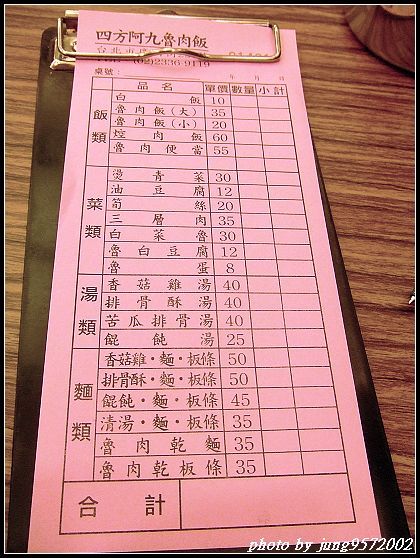 四方阿九魯肉飯
台北市
(02)2336 9119
桌號: 年 月 日
品名 單價 數量 小計
飯類
白飯 10
魯肉飯(大) 35
魯肉飯(小) 20
焢肉飯 60
魯肉便當 55
菜類
燙青菜 30
油豆腐 12
筍絲 20
三層肉 35
白菜魯 30
魯白豆腐 12
魯蛋 8
湯類
香菇雞湯 40
排骨酥湯 40
苦瓜排骨湯 40
餛飩湯 25
麵類
香菇雞·麵·板條 50
排骨酥·麵·板條 50
餛飩·麵·板條 45
清湯·麵·板條 35
魯肉乾麵 35
魯肉乾板條 35
合計
photo by jung9572002